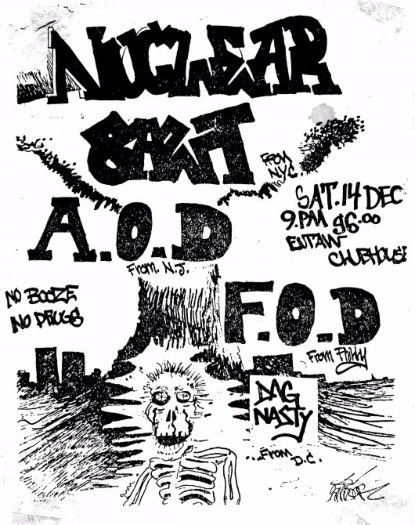 NUCLEAR
FROM
N.Y.C.
SAT. 14 DEC
9.PM $6.00
EUTAW
CLUBHOUSE
A.O.D
From. N.J.
NO BOOZE
NO DRUGS
F.O.D
From Philly
DAG
NASTY
...From
D.C.